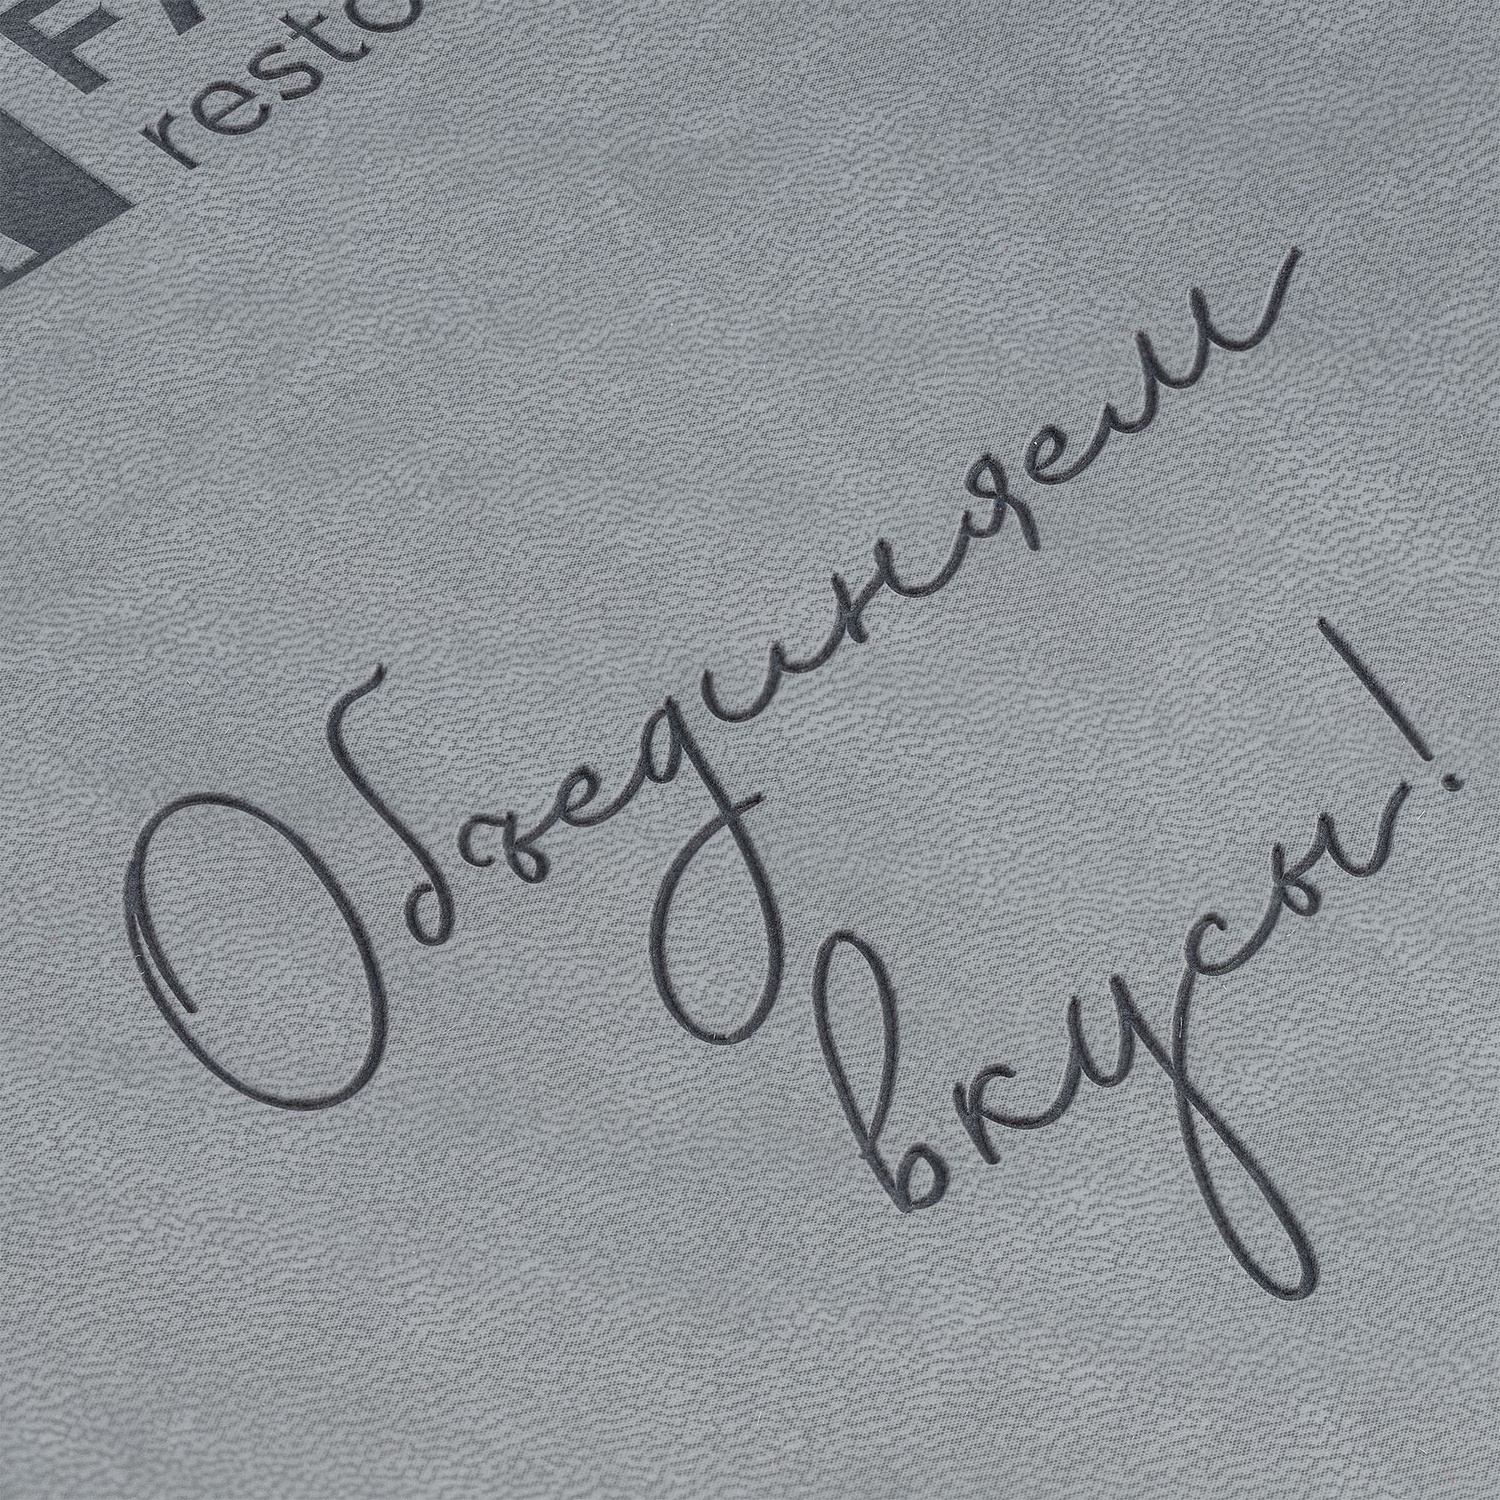 resto
Объединяем
вкусы!